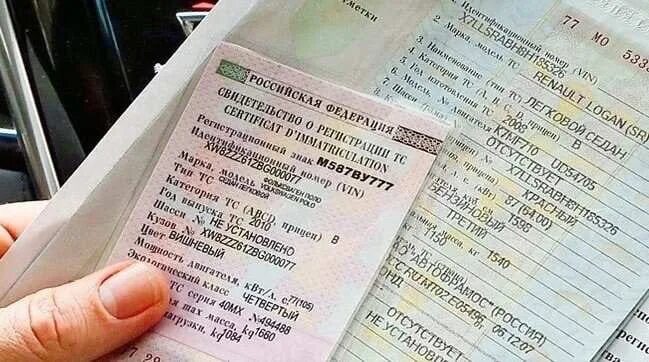 РОССИЙСКАЯ ФЕДЕРАЦИЯ
СВИДЕТЕЛЬСТВО О РЕГИСТРАЦИИ ТС
CERTIFICAT D'IMMATRICULATION
Регистрационный знак М587ВУ777
Идентификационный номер (VIN)
XW8ZZZ61ZBG000077
Марка, модель ФОЛЬКСВАГЕН ПОЛО
VOLKSWAGEN POLO
Тип ТС СЕДАН ЛЕГКОВОЙ
Категория ТС (ABCD, прицеп) B
Год выпуска ТС 2010
Шасси № НЕ УСТАНОВЛЕНО
Кузов № XW8ZZZ61ZBG000077
Цвет ВИШНЕВЫЙ
Мощность двигателя, кВт/л. с. 77(105)
Экологический класс ЧЕТВЕРТЫЙ
ТС серия 40МХ №494488
max масса, kg 1660
нагрузки, kg 1084
метки
77 МО 533
1. Идентификационный номер (VIN)
X7LLSRABH8H185326
2. Марка, модель ТС
RENAULT LOGAN (SR)
3. Наименование (тип ТС) ЛЕГКОВОЙ СЕДАН
4. Категория ТС (А, В, С, D, прицеп) B
5. Год изготовления ТС
K7MF710 UD54705
7. Шасси
ОТСУТСТВУЕТ
X7LLSRABH8H185326
КРАСНЫЙ
87 (64.00)
1598
БЕНЗИНОВЫЙ
ТРЕТИЙ
масса, кг 1540
"АВТОФРАМОС" (РОССИЯ)
06.12.07
ОТСУТСТВУЕТ
НЕ УСТАНОВ